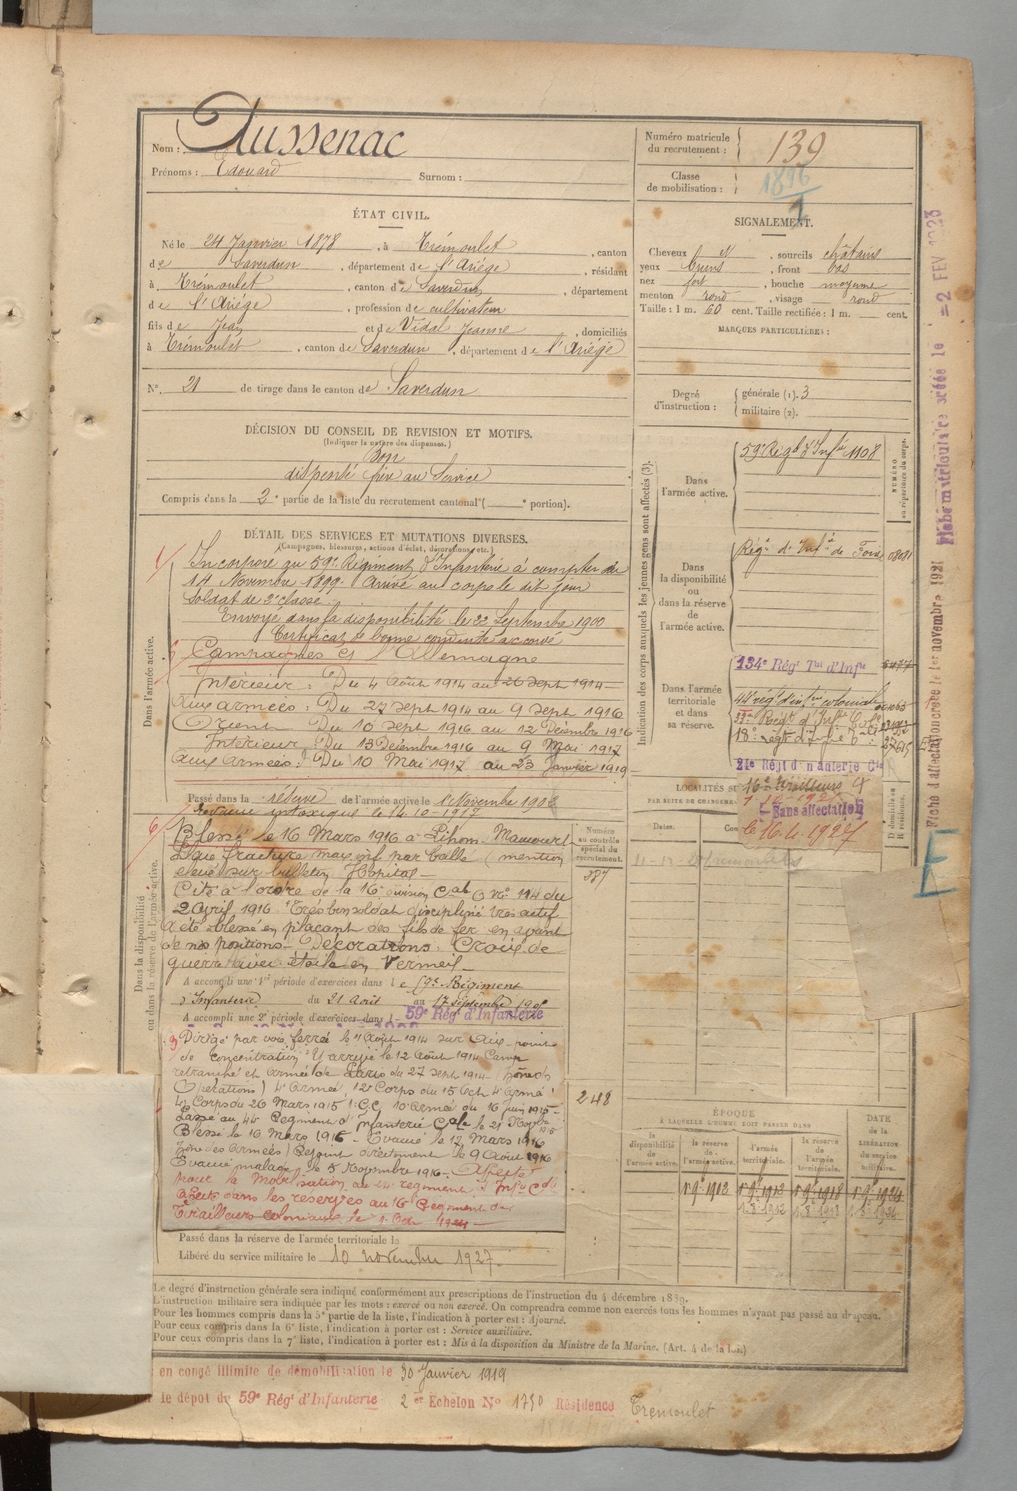 Nom : Aussenac
Prénoms : Edouard Surnom :
Numéro matricule du recrutement : 139
Classe de mobilisation : 1896
ÉTAT CIVIL.
Né le 24 Janvier 1878, à Trémoulet, canton
de Saverdun, département de l'Ariége, résidant
à Trémoulet, canton de Saverdun, département
de l'Ariége, profession de cultivateur
fils de Jean et de Vidal Jeanne, domiciliés
à Trémoulet, canton de Saverdun, département de l'Ariége
N° 21 de tirage dans le canton de Saverdun
SIGNALEMENT.
Cheveux N, sourcils châtains
yeux bruns, front bas
nez fort, bouche moyenne
menton rond, visage rond
Taille : 1 m. 60 cent. Taille rectifiée : 1 m. cent.
MARQUES PARTICULIÈRES :
Degré d'instruction : générale (1). 3
militaire (2).
DÉCISION DU CONSEIL DE REVISION ET MOTIFS.
(Indiquer la nature des dispenses.)
Bon
dispensé frère au Service
Compris dans la 2e partie de la liste du recrutement cantonal ( e portion).
DÉTAIL DES SERVICES ET MUTATIONS DIVERSES.
(Campagnes, blessures, actions d'éclat, décorations, etc.)
Dans l'armée active.
Incorporé au 59e Régiment d'Infanterie à compter du
14 Novembre 1899. Arrivé au corps le dit jour
Soldat de 2e classe.
Envoyé dans la disponibilité le 22 Septembre 1900
Certificat de bonne conduite accordé
Campagnes Ct l'Allemagne
Intérieur : Du 4 Août 1914 au 26 Sept 1914
Aux armées : Du 27 Sept 1914 au 9 Sept 1916
Orient Du 10 Sept 1916 au 12 Décembre 1916
Intérieur Du 13 Décembre 1916 au 9 Mai 1917
Aux Armées : Du 10 Mai 1917 au 23 Janvier 1919
Passé dans la réserve de l'armée active le 1 Novembre 1902
intoxiqué le 14-10-1917
Dans la disponibilité ou dans la réserve de l'armée active.
Blessé le 16 Mars 1916 à Lihons-Maucourt
fracture max. inf par balle (mention
sur bulletin Hôpital
Cité à l'ordre de la 16e division Cale O. No 114 du
2 Avril 1916 "Très bon soldat discipliné très actif
A été blessé en plaçant des fils de fer en avant
de nos positions". Décorations : Croix de
guerre avec étoile en Vermeil
A accompli une 1re période d'exercices dans le 59e Régiment
d'Infanterie du 21 Avril au
A accompli une 2e période d'exercices dans l 59e Régt d'Infanterie
Dirigé par voie ferrée le 11 Août 1914 sur Aix - point
de concentration. Y arrive le 12 Août 1914 Camp
retranché et Armée de Paris du 27 Sept 1914 - (Zône des
Opérations) 4e Armée 12e Corps du 15 Oct 4e Armée
4e Corps du 26 Mars 1915 10e Armée du 16 Juin 1915
Passé au 44e Regiment d'Infanterie Cale le 21 Novbre 1915
Blessé le 16 Mars 1916 - Evacué le 17 Mars 1916
Zône des Armées) Rejoint directement le 9 Août 1916
Evacué malade le 8 Novembre 1916. Affecté
pour la Mobilisation au 21e régiment d'Infie Cole
Affecté dans les réserves au 16e Regiment de
Tirailleurs coloniaux le
Passé dans la réserve de l'armée territoriale le
Libéré du service militaire le 10 novembre 1927.
Indication des corps auxquels les jeunes gens sont affectés (3).
NUMÉRO au répertoire du corps.
Dans l'armée active.
59e Régt d'Infie 1108
Dans la disponibilité ou dans la réserve de l'armée active.
Régt d'Infie de Foix
Dans l'armée territoriale et dans sa réserve.
134e Régt Tal d'Infie
44e régt d'infrie coloniale
21e Régt d'Infanterie Cle
16e Tirailleurs Cx
Sans affectation
le 16.4.1927
Dates.
Numéro au contrôle spécial du recrutement.
387
248
D domicile ou R résidence.
ÉPOQUE
À LAQUELLE L'HOMME DOIT PASSER DANS
la disponibilité de l'armée active.
la réserve de l'armée active.
l'armée territoriale.
la réserve de l'armée territoriale.
DATE de la LIBÉRATION du service militaire.
Le degré d'instruction générale sera indiqué conformément aux prescriptions de l'instruction du 4 décembre 1889.
L'instruction militaire sera indiquée par les mots : exercé ou non exercé. On comprendra comme non exercés tous les hommes n'ayant pas passé au drapeau.
Pour les hommes compris dans la 5e partie de la liste, l'indication à porter est : Ajourné.
Pour ceux compris dans la 6e liste, l'indication à porter est : Service auxiliaire.
Pour ceux compris dans la 7e liste, l'indication à porter est : Mis à la disposition du Ministre de la Marine. (Art. 4 de la loi)
en congé illimité de démobilisation le 30 Janvier 1919
le dépôt du 59e Régt d'Infanterie 2e Echelon No 1750 Résidence Tremoulet
Fiche d'affectation créée le 1er novembre 1921
Fiche matriculaire créée le = 2 FEV 1923